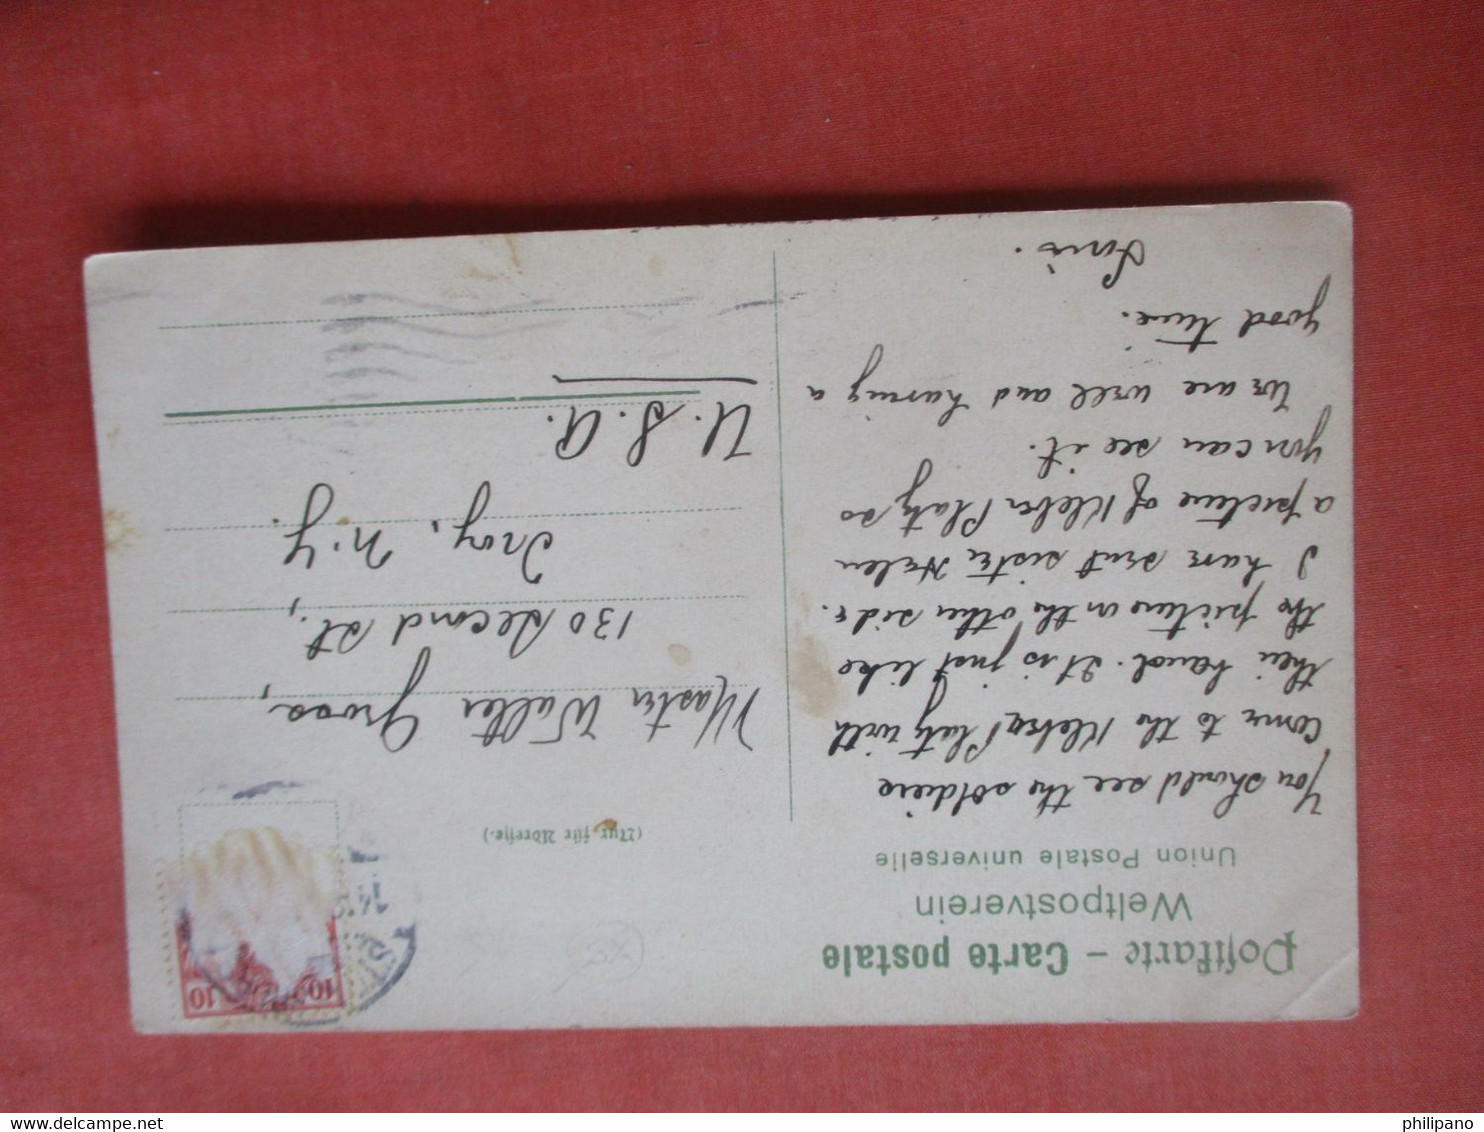 Postkarte – Carte postale
Weltpostverein
Union Postale universelle
You should see the soldiers
come to the Kleber Platz with
their band. It is just like
the picture on the other side.
I have sent sister Helen
a picture of Kleber Platz so
you can see it.
We are well and having a
good time.
(Nur für Adresse.)
Master Walter Gross,
130 Second St.,
Troy, N.Y.
U.S.A.
10 10
philipano